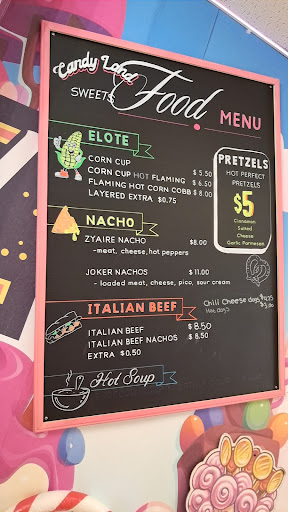 Candy Land
SWEETS
Food
MENU
ELOTE
CORN CUP $ 5.50
CORN CUP HOT FLAMING $ 6.50
FLAMING HOT CORN COBB $ 8.00
LAYERED EXTRA $0.75
PRETZELS
HOT PERFECT
PRETZELS
$5
Cinnamon
Salted
Cheese
Garlic Parmesan
NACHO
ZYAIRE NACHO $8.00
-meat, cheese, hot peppers
JOKER NACHOS $ 11.00
- loaded meat, cheese, pico, sour cream
ITALIAN BEEF
ITALIAN BEEF $ 8.50
ITALIAN BEEF NACHOS $ 8.50
EXTRA $0.50
Chili Cheese dogs
Hot dogs
Hot Soup